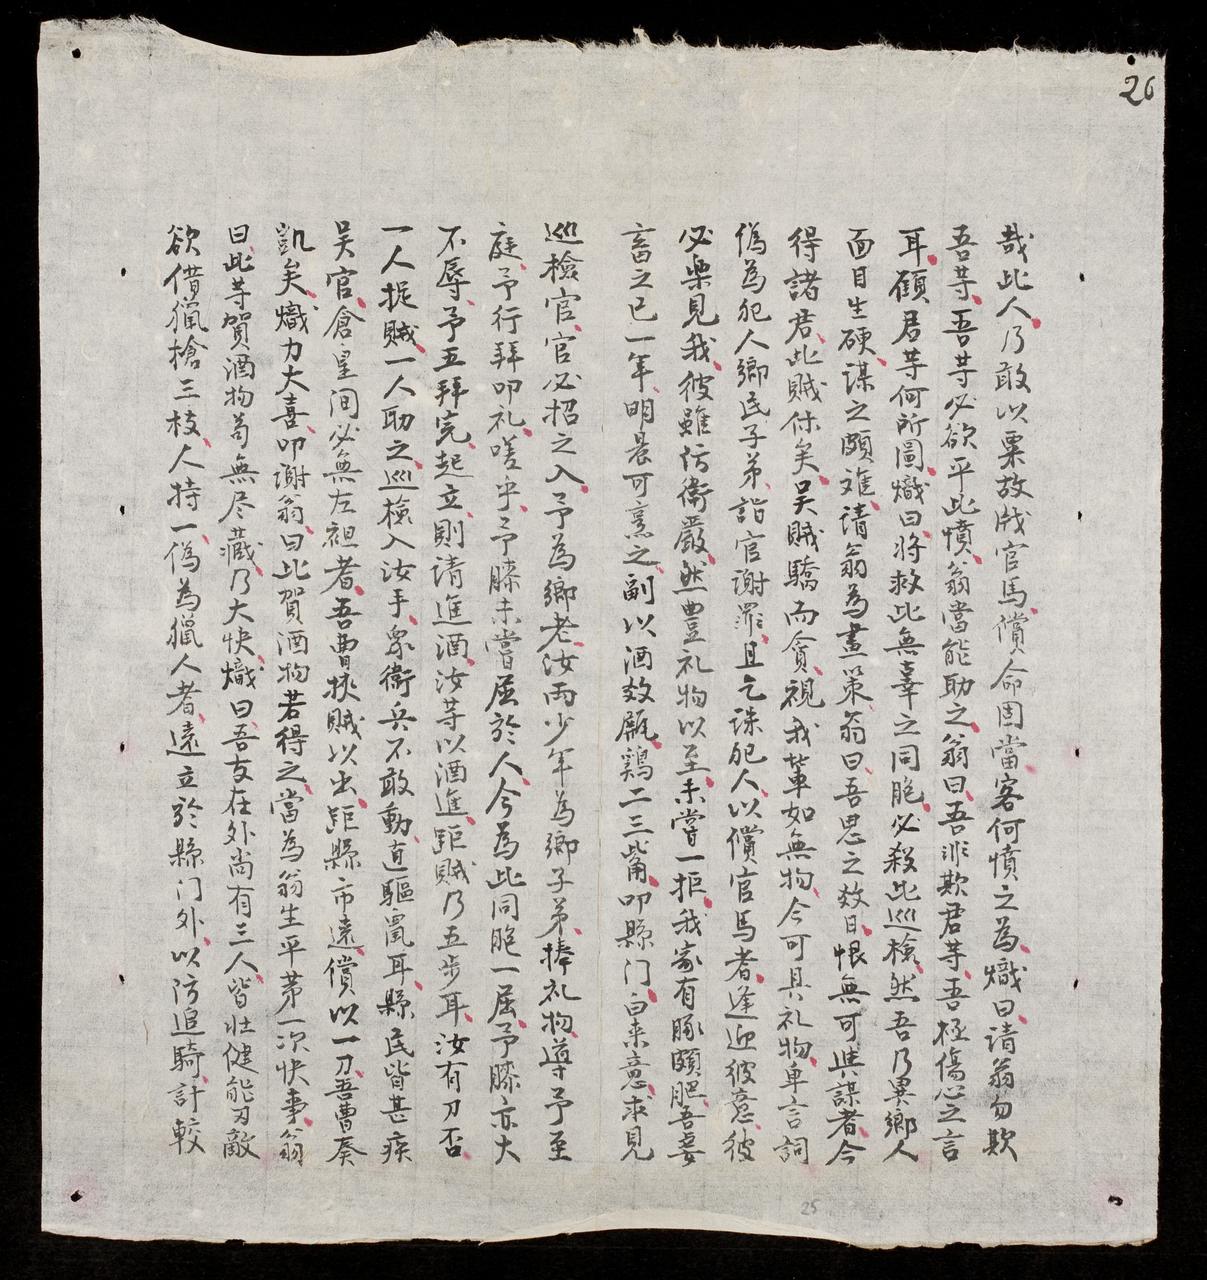 26
哉此人乃敢以粟故戕官馬償命固當客何憤之為熾曰請翁勿欺
吾等吾等必欲平此憤翁當能助之翁曰吾非欺君等吾極傷心之言
耳顧君等何所圖熾曰將救此無辜之同胞必殺此巡檢然吾乃異鄉人
面目生硬謀之頗难請翁為畫策翁曰吾思之效日恨無可與謀者今
得諸君此賊休矣吴賊驕而貪視我軰如無物今可具礼物卑言詞
偽為犯人鄉民子弟詣官謝罪且乞誅犯人以償官馬者逢迎彼意彼
必樂見我彼雖防衞嚴然豊礼物以至未嘗一拒我家有豚頗肥吾妻
畜之已一年明晨可烹之副以酒效瓶鶏二三觜叩縣门白来意求見
巡檢官官必招之入予為鄉老汝両少年為鄉子弟捧礼物導予至
庭予行拜叩礼嗟乎予膝未嘗屈於人今為此同胞一屈予膝亦大
不辱予五拜完起立則请進酒汝等以酒進距賊乃五步耳汝有刀否
一人捉賊一人助之巡檢入汝手众衞兵不敢動直驅罵耳縣民皆甚疾
吴官倉皇间必無左袒者吾曹挾賊以出距縣市遠償以一刀吾曹奏
凱矣熾力大喜叩谢翁曰此賀酒物若得之當為翁生平苐一次快事翁
曰此等賀酒物吾無尽藏乃大快熾曰吾友在外尚有三人皆壮健能刃敵
欲借獵槍三枝人持一偽為獵人者遠立於縣门外以防追騎計較
25